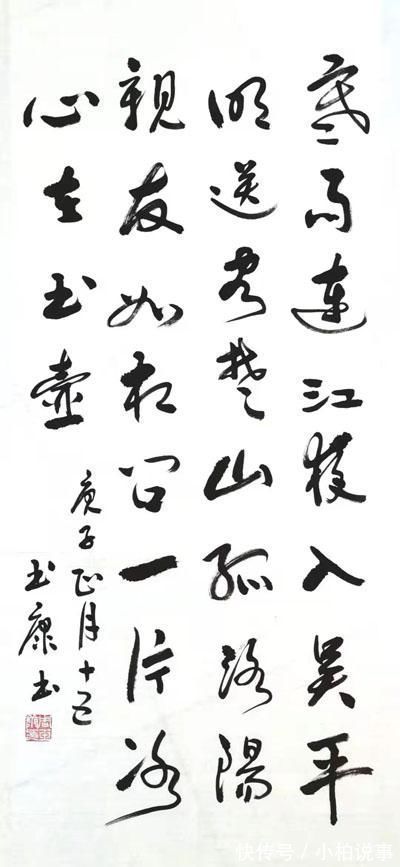 寒雨連江夜入吴平
明送客楚山孤洛陽
親友如相问一片冰
心在玉壺
庚子正月十五
玉康书
快传号 / 小柏说事